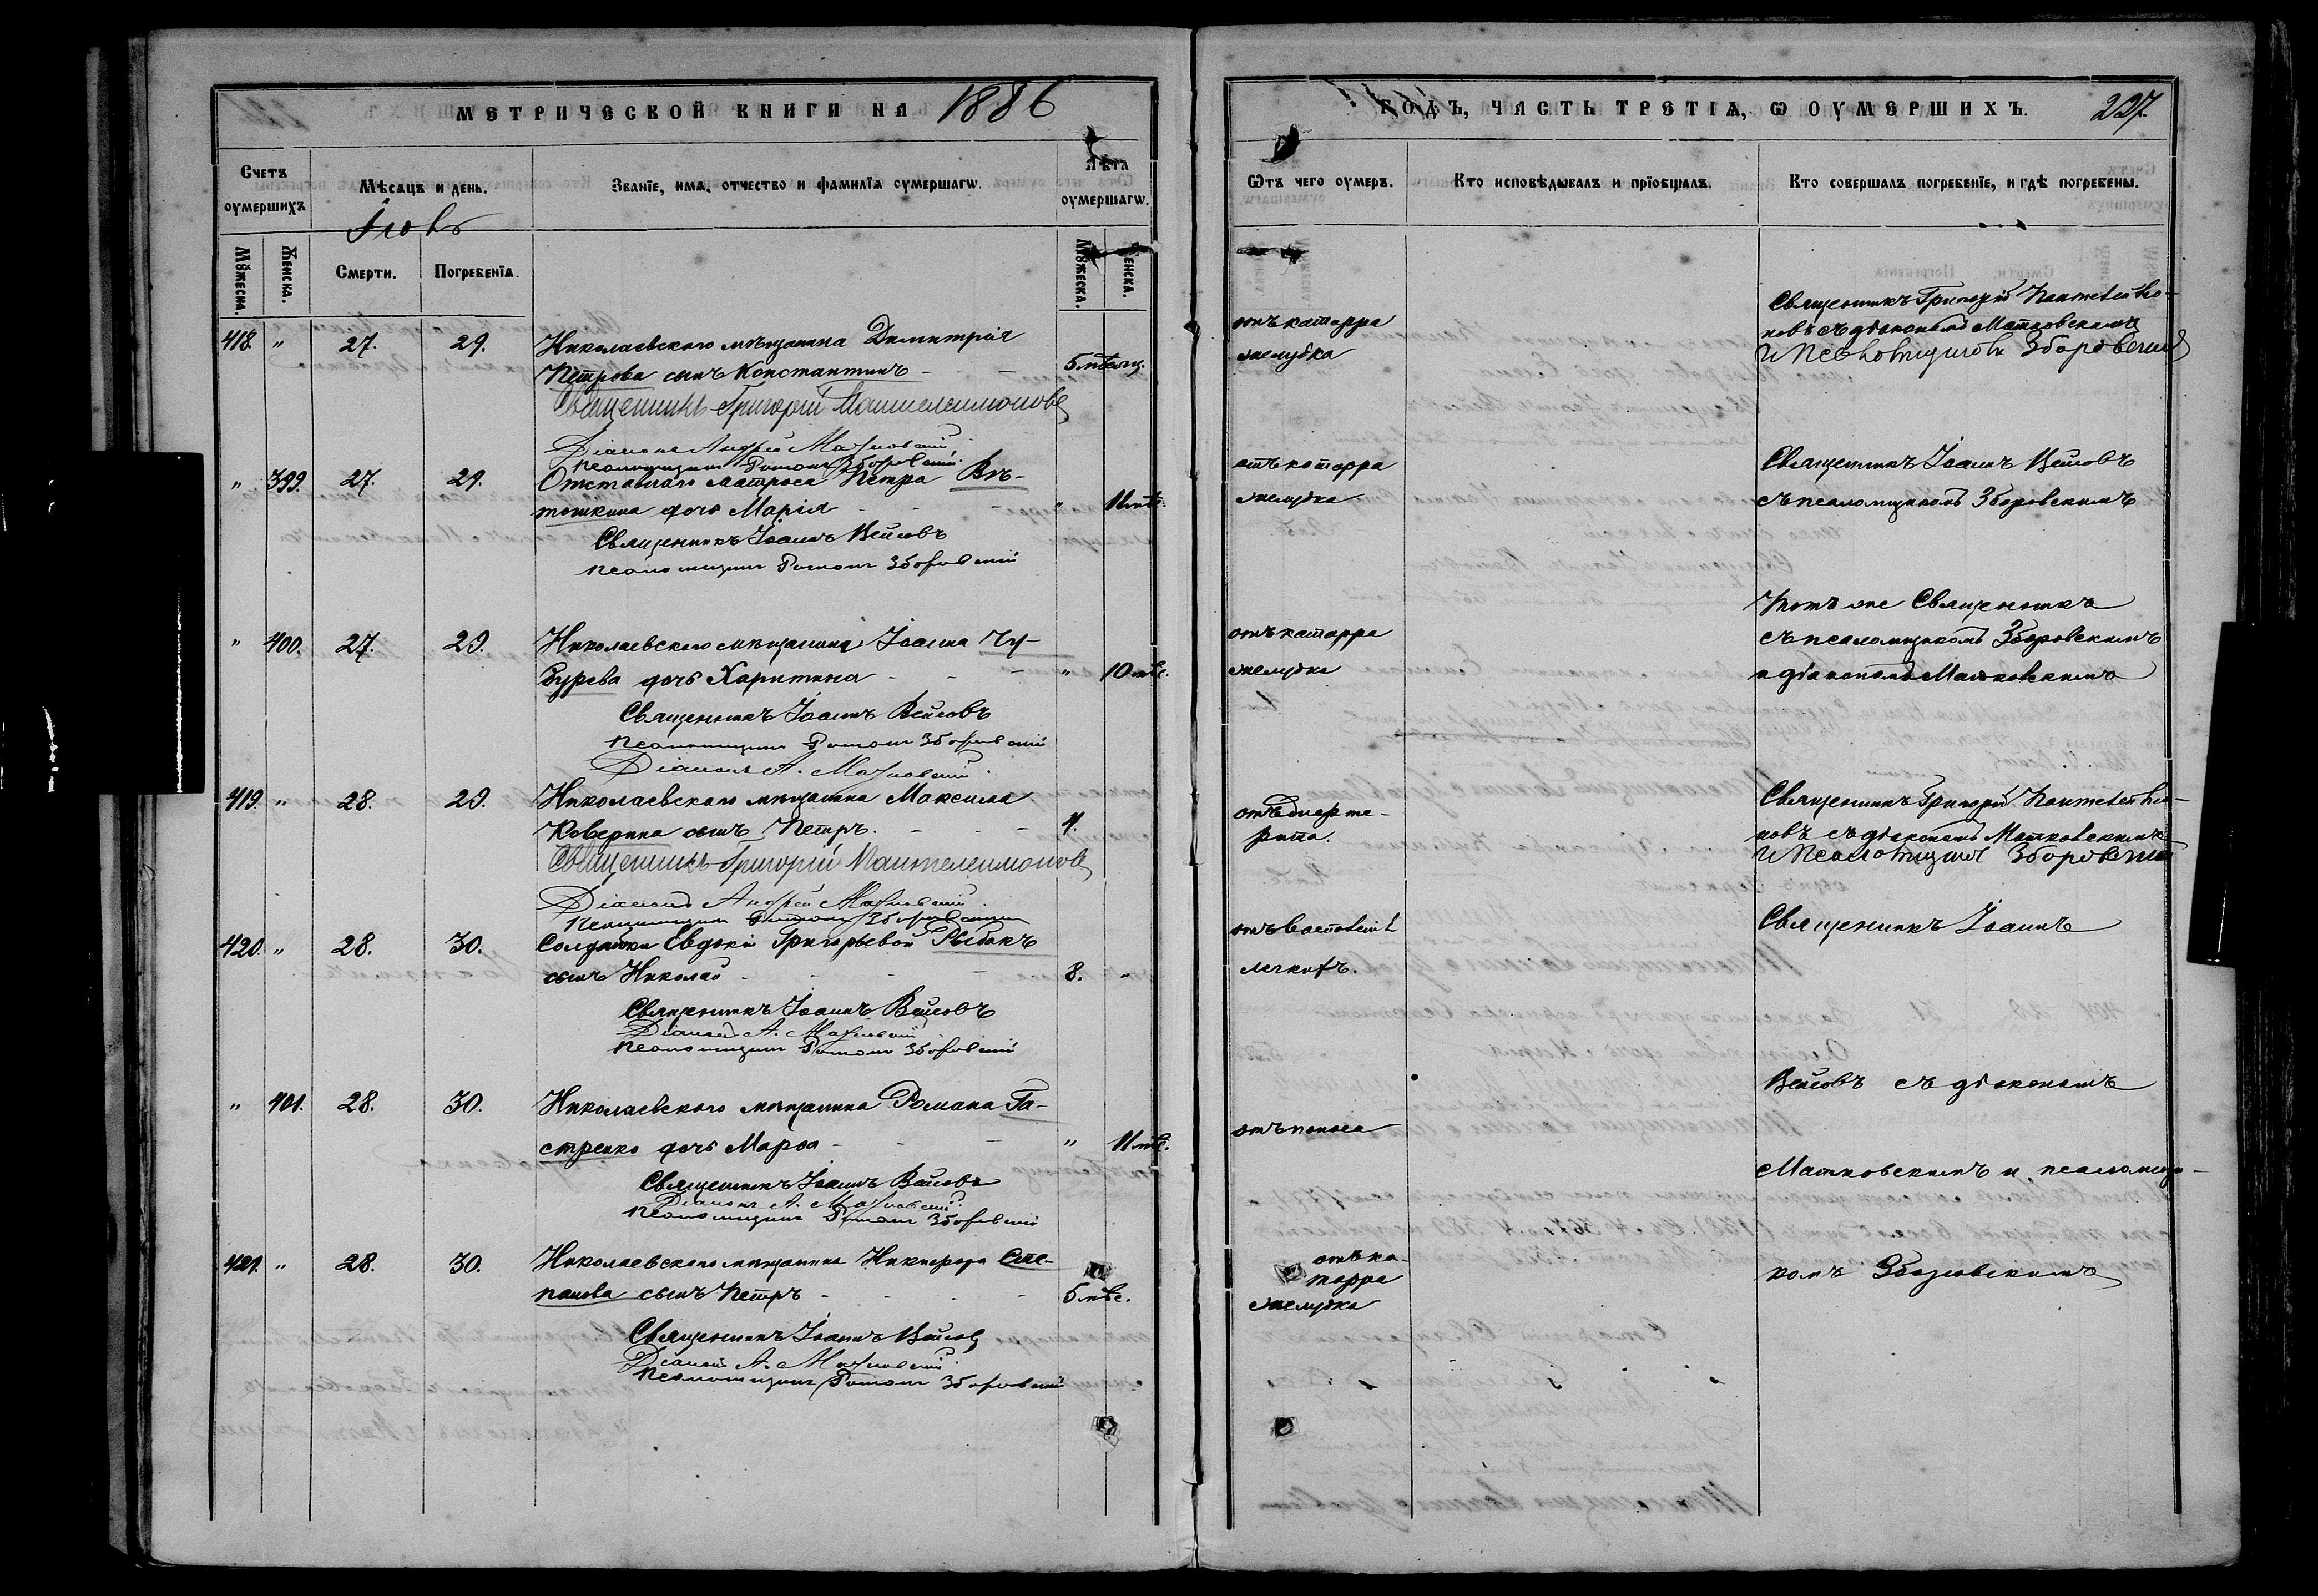 МЕТРИЧЕСКОЙ КНИГИ НА 1886
Счетъ оумершихъ
Мѣсяцъ и день.
Званїе, имя, отчество и фамилїя оумершагѡ.
Лѣта оумершагѡ.
Іюль
Мꙋжеска. Женска. Смерти. Погребенїя. Мꙋжеска. Женска.
418. " 27. 29. Николаевскаго мѣщанина Димитрія
Петрова сынъ Константинъ - - 5 мѣсяц.
Священникъ Григорій Пантелеимоновъ
Діаконъ Андрей Матковскій
Псаломщикъ Романъ Зборовскій
" 399. 27. 29. Отставнаго матроса Петра Вѣ-
тошкина дочь Марія - - - " 11 мѣс.
Священникъ Іоаннъ Вейсовъ
Псаломщикъ Романъ Зборовскій
" 400. 27. 29. Николаевскаго мѣщанина Іоанна Чу-
бурева дочь Харитина - - - " 10 мѣс.
Священникъ Іоаннъ Вейсовъ
Псаломщикъ Романъ Зборовскій
Діаконъ А. Матковскій
419. " 28. 29. Николаевскаго мѣщанина Максима
Коверина сынъ Петръ. - - - 4.
Священникъ Григорій Пантелеимоновъ
Діаконъ Андрей Матковскій
Псаломщикъ Романъ Зборовскій
420. " 28. 30. Солдатки Евдокіи Григорьевой Рыбакъ
сынъ Николай - - - - 8. -
Священникъ Іоаннъ Вейсовъ
Діаконъ А. Матковскій
Псаломщикъ Романъ Зборовскій
" 401. 28. 30. Николаевскаго мѣщанина Романа Га-
стренко дочь Марѳа - - - " 11 мѣс.
Священникъ Іоаннъ Вейсовъ
Діаконъ А. Матковскій
Псаломщикъ Романъ Зборовскій
421. " 28. 30. Николаевскаго мѣщанина Никифора Сте-
панова сынъ Петръ - - - - 5 мѣс.
Священникъ Іоаннъ Вейсовъ
Діаконъ А. Матковскій
Псаломщикъ Романъ Зборовскій
ГОДЪ, ЧАСТЬ ТРЕТІЯ, Ѡ ОУМЕРШИХЪ. 227.
Ѿтъ чего оумеръ.
Кто исповѣдывалъ и прїобщалъ.
Кто совершалъ погребенїе, и гдѣ погребены.
отъ катарра
желудка
Священникъ Григорій Пантелеймо-
новъ съ діакономъ Матковскимъ
и Псаломщикомъ Зборовскимъ
отъ катарра
желудка
Священникъ Іоаннъ Вейсовъ
съ псаломщикомъ Зборовскимъ
отъ катарра
желудка
Тотъ же Священникъ
съ псаломщикомъ Зборовскимъ
и діакономъ Матковскимъ
отъ дифте-
рита.
Священникъ Григорій Пантелеймо-
новъ съ діакономъ Матковскимъ
и Псаломщикомъ Зборовскимъ
отъ воспаленія
легкихъ.
Священникъ Іоаннъ
отъ поноса
Вейсовъ съ діакономъ
Матковскимъ и псаломщи-
отъ ка-
тарра
желудка
комъ Зборовскимъ